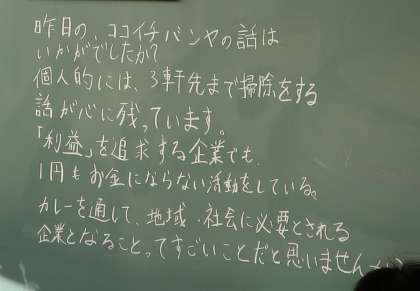 昨日の、ココイチバンヤの話は
いかがでしたか?
個人的には、3軒先まで掃除をする
話が心に残っています。
「利益」を追求する企業でも、
1円もお金にならない活動をしている。
カレーを通して、地域・社会に必要とされる
企業となることってすごいことだと思いません